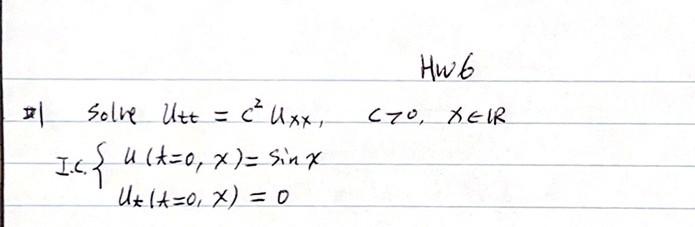 HW6
#1 Solve Utt = c² Uxx, C>0, X∈ℝ
I.C. { U(t=0, x) = Sin x
Ut(t=0, x) = 0